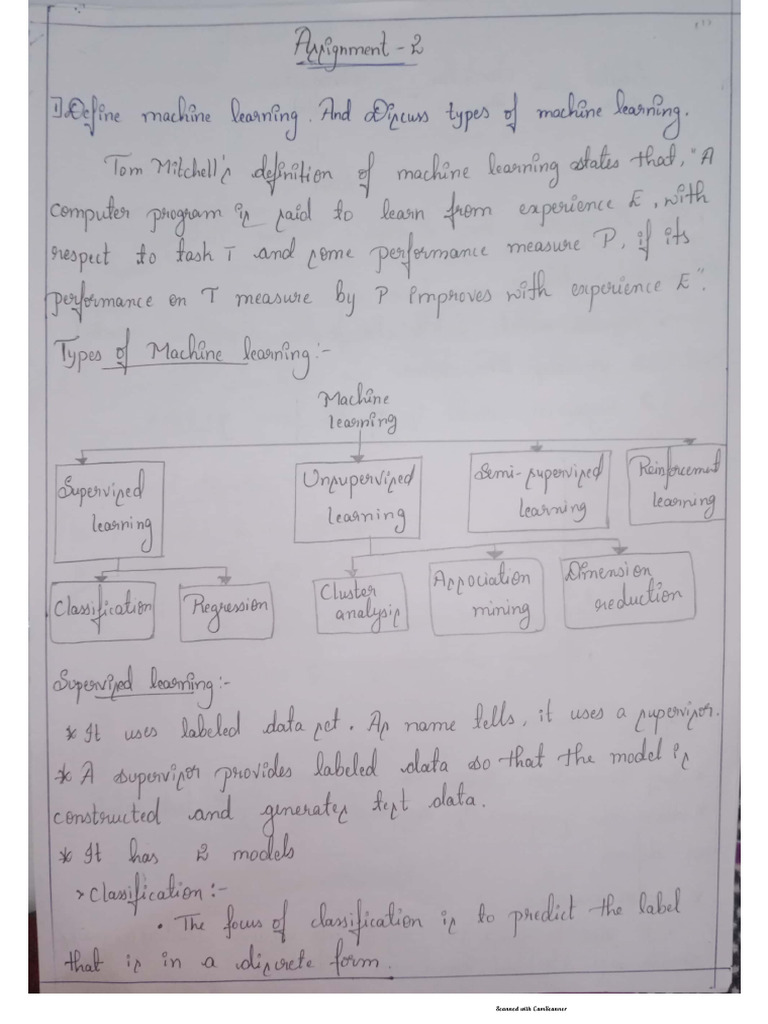 Assignment - 2
1) Define machine learning. And Discuss types of machine learning.
Tom Mitchell's definition of machine learning states that, "A
computer program is said to learn from experience E, with
respect to task T and some performance measure P, if its
performance on T measure by P improves with experience E".
Types of Machine learning :-
Machine
learning
Supervised
learning
Unsupervised
learning
Semi-supervised
learning
Reinforcement
learning
Classification
Regression
Cluster
analysis
Association
mining
Dimension
reduction
Supervised learning :-
* It uses labeled data set. As name tells, it uses a supervisor.
* A supervisor provides labeled data so that the model is
constructed and generates test data.
* It has 2 models
> Classification :-
• The focus of classification is to predict the label
that is in a discrete form.
Scanned with CamScanner